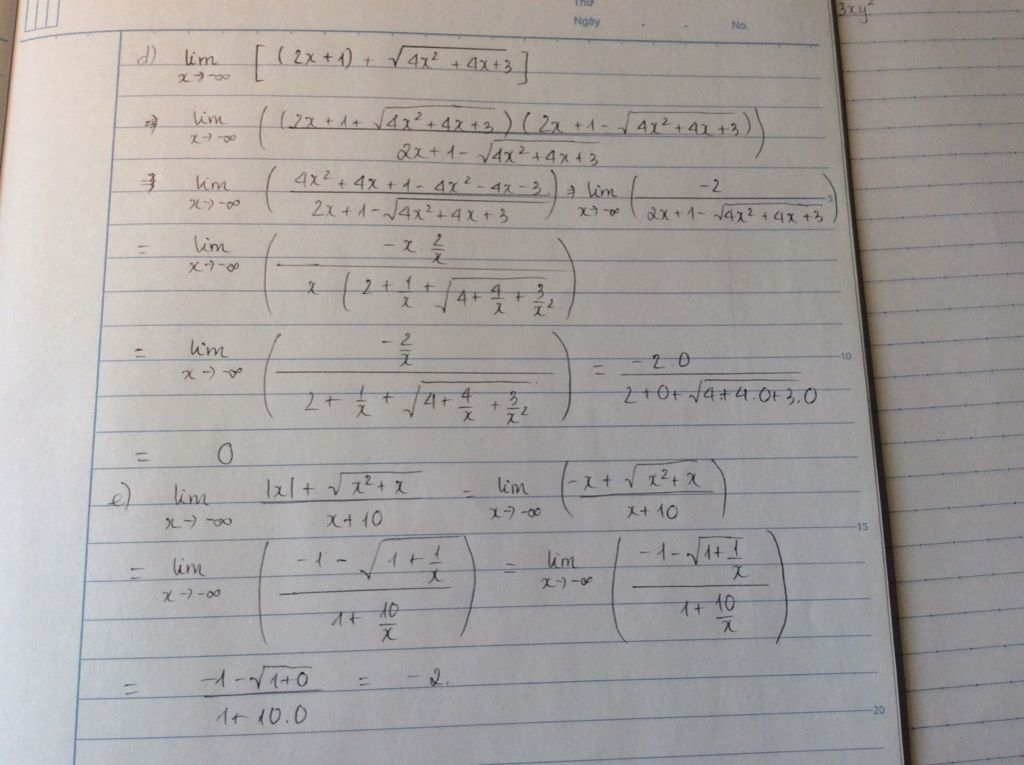 Thứ
Ngày . . No.
3xy²
d) lim x→-∞ [ (2x+1) + √(4x² + 4x+3) ]
⇒ lim x→-∞ ( (2x+1+ √(4x²+4x+3)) (2x+1-√(4x²+4x+3)) / 2x+1-√(4x²+4x+3) )
⇒ lim x→-∞ ( 4x²+4x+1-4x²-4x-3 / 2x+1-√(4x²+4x+3) ) ⇒ lim x→-∞ ( -2 / 2x+1-√(4x²+4x+3) )
5
= lim x→-∞ ( -x. 2/x / x ( 2 + 1/x + √(4+ 4/x + 3/x²) )
= lim x→-∞ ( -2/x / 2+ 1/x + √(4+ 4/x + 3/x²) ) = -2.0 / 2+0+√(4+4.0+3.0)
10
= 0
e) lim x→-∞ |x|+√(x²+x) / x+10 = lim x→-∞ ( -x+√(x²+x) / x+10 )
15
= lim x→-∞ ( -1-√(1+ 1/x) / 1+ 10/x ) = lim x→-∞ ( -1-√(1+ 1/x) / 1+ 10/x )
= -1-√(1+0) / 1+10.0 = -2.
20